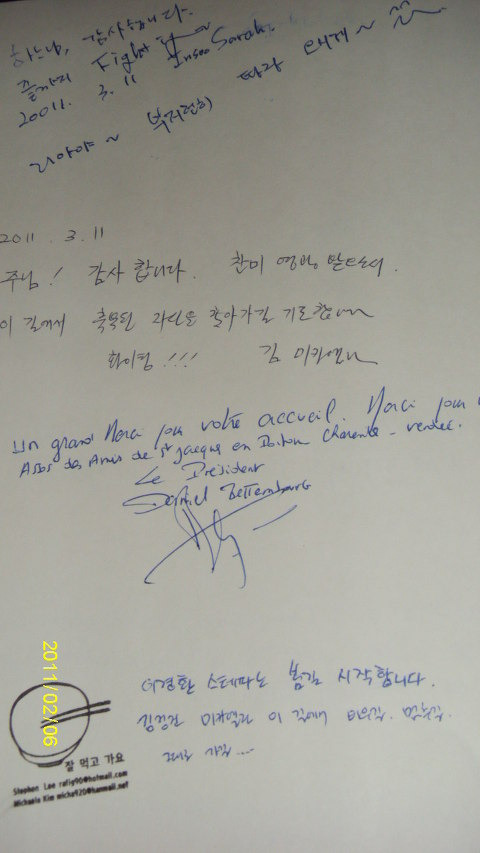 하느님, 감사합니다.
끝까지 Fight Insoo Sarah.
20011. 3. 11
2011. 3. 11
주님! 감사 합니다. 찬미 영광 받으소서.
이 길에서 축복된 자신을 찾아가길 기도합니다
화이팅!!! 김 미카엘라
Un grand Merci pour votre accueil. Merci pour
Asso des Amis de St Jacques en Poitou Charente - vendée.
Le Président
Daniel
2011/02/06
이경환 스테파노 봄길 시작합니다.
미카엘라 이 길에서
그대로
잘 먹고 가요
Stephen Lee rafig90@hotmail.com
Michaela Kim micha920@hanmail.net